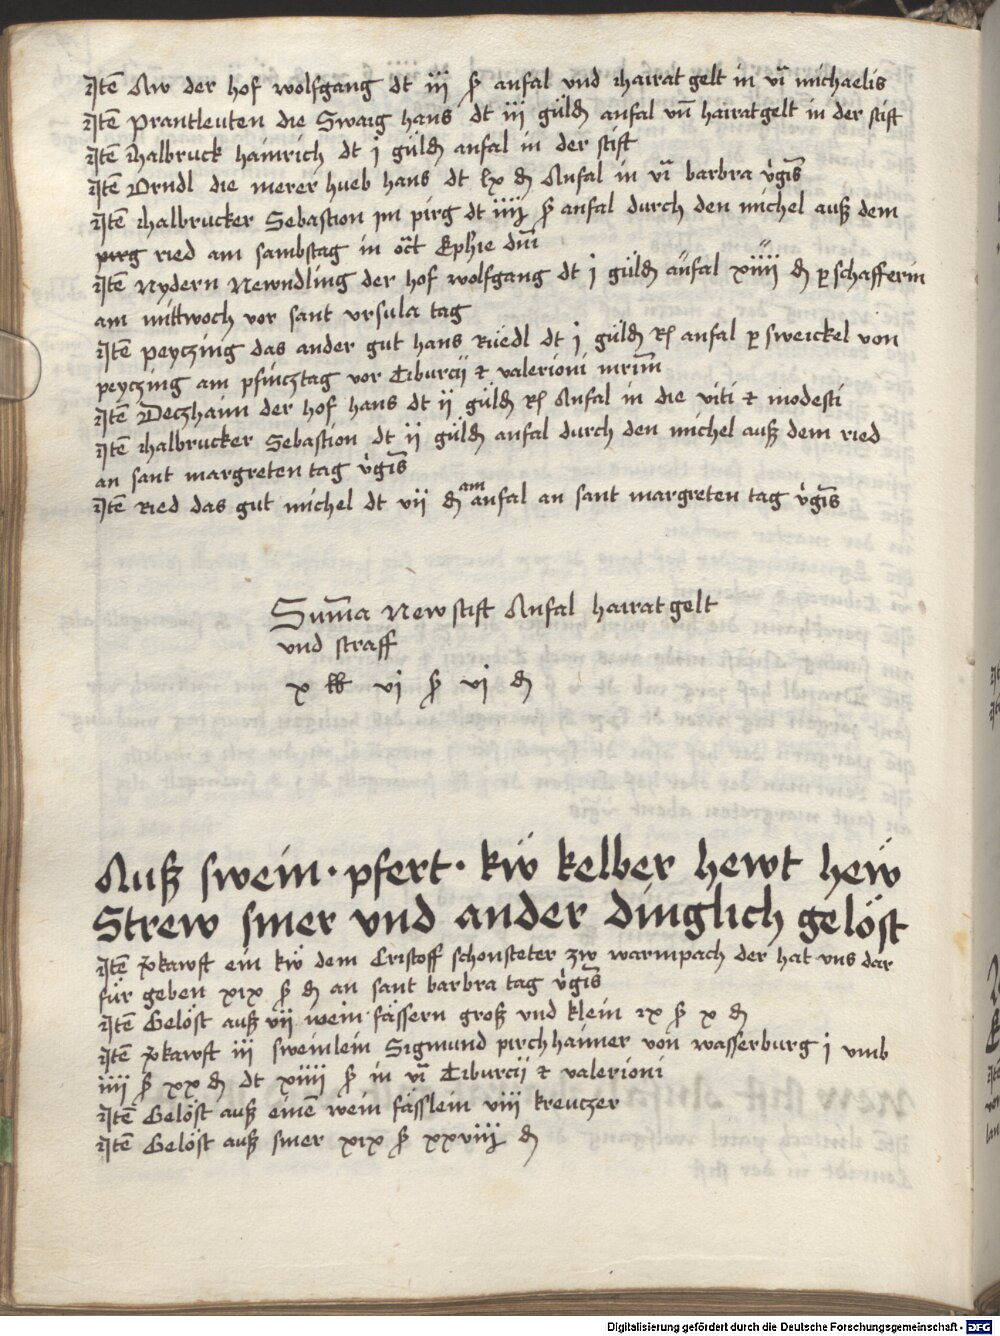 Itē Aw der hof wolfgang dt iij ß anfal und hairat gelt in vī michaelis
Itē Prantleuten die Swaig hans dt iij guld̄ anfal vn̄ hairatgelt in der stift
Itē Halbruck hainrich dt j guld̄ anfal in der stift
Itē Örndl die merer hueb hans dt lx d Anfal in vī barbra v̓gīs
Itē Halbrucker Sebastion im pirg dt iiij ß anfal durch den michel auß dem
pirg ried am sambstag in oct Ephie dm̄
Itē Nydern Newndling der hof wolfgang dt j guld̄ anfal xiiij d p schafferin
am mittwoch vor sant vrsula tag
Itē peyczing das ander gut hans Rüedl dt j guld̄ Rh anfal p sweickel von
peyczing am pfincztag vor Tiburcij & valerioni mrīm
Itē Deczhaim der hof hans dt ij guld̄ Rh Anfal in die viti & modesti
Itē Halbrucker Sebastion dt ij guld̄ anfal durch den michel auß dem ried
an sant margreten tag v̓gīs
Itē Ried das gut michel dt vij d am anfal an sant margreten tag v̓gīs
Sum̄a New stift Anfal hairat gelt
und straff
x lb vj ß vj d
Auß swein · pfert · kẅ kelber hewt heẅ
Strew smer vnd ander dinglich gelöst
Itē v̓kawft ein kẅ dem Cristoff schonsteter zw warmpach der hat vns dar
für geben xix ß d an sant barbra tag v̓gīs
Itē Gelöst auß vij wein fässern groß vnd klein ix ß x d
Itē v̓kawft iij sweinlein Sigmund pirchhaimer von wasserburg j vmb
iiij ß xx d dt xiiij ß in vī Tiburcij & valerioni
Itē Gelöst auß einē wein fässlein viij kreuczer
Itē Gelöst auß smer xix ß xxviij d
Digitalisierung gefördert durch die Deutsche Forschungsgemeinschaft - DFG